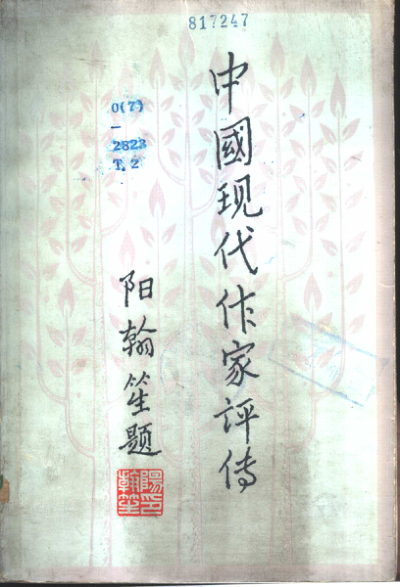 817247
0(7)
—
2823
T.2
中國现代作家评传
阳翰笙题
陽翰笙印